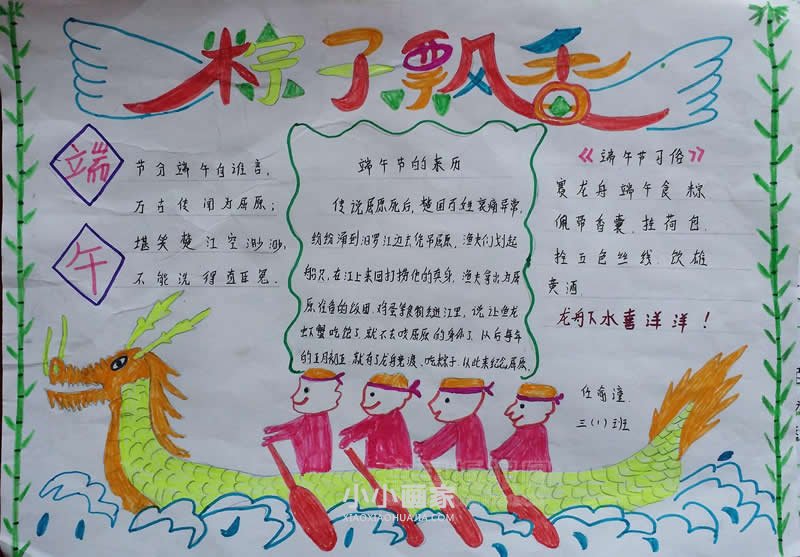 粽子飘香
端
午
节分端午自谁言,
万古传闻为屈原;
堪笑楚江空渺渺,
不能洗得直臣冤。
端午节的来历
传说屈原死后,楚国百姓哀痛异常,
纷纷涌到汨罗江边去凭吊屈原。渔夫们划起
船只,在江上来回打捞他的真身。渔夫拿出为屈
原准备的饭团、鸡蛋等食物丢进江里,说让鱼龙
虾蟹吃饱了,就不去咬屈原的身体了。从后每年
的五月初五,就有了龙舟竞渡、吃粽子。以此来纪念屈原。
《端午节习俗》
赛龙舟 端午食粽
佩带香囊、拴荷包
拴五色丝线、饮雄
黄酒
龙舟下水喜洋洋!
三(1)班
小小画家
XIAOXIAOHUAJIA.COM